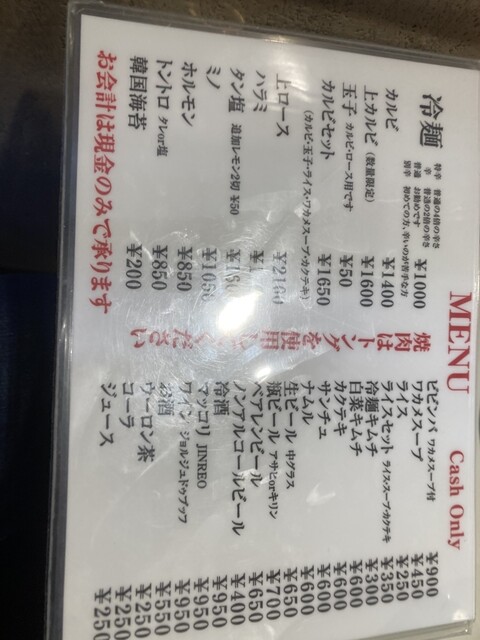 MENU Cash Only
冷麺 ¥1000
特辛 普通の4倍の辛さ
辛 普通の2倍の辛さ
普通 お勧めです
別辛 初めての方、辛いのが苦手な方
カルビ ¥1400
上カルビ (数量限定) ¥1600
玉子 カルビ・ロース用です ¥50
カルビセット ¥1650
(カルビ・玉子・ライス・ワカメスープ・カクテキ)
上ロース ¥2100
ハラミ
タン塩 追加レモン2切 ¥50
ミノ ¥1050
ホルモン ¥850
トントロ タレor塩 ¥850
韓国海苔 ¥200
お会計は現金のみで承ります
焼肉は
トングを使用してください
ビビンバ ワカメスープ付 ¥900
ワカメスープ ¥450
ライス ¥250
ライスセット ライス・スープ・カクテキ ¥350
冷麺キムチ ¥300
白菜キムチ ¥600
カクテキ ¥600
サンチュ ¥600
ナムル ¥600
生ビール 中グラス ¥650
瓶ビール アサヒorキリン ¥700
ベアレンビール ¥650
ノンアルコールビール ¥400
冷酒 ¥950
マッコリ JINRO ¥950
ワイン ジョルジュドゥブッフ ¥950
お酒 ¥550
ウーロン茶 ¥250
コーラ ¥250
ジュース ¥250